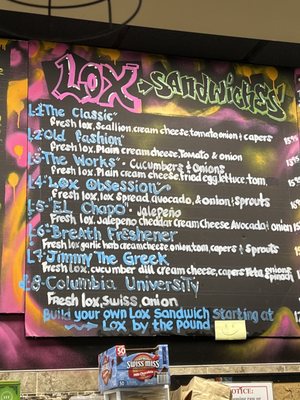 LOX → SANDWICHES!
L1 "The Classic"
Fresh lox, Scallion cream cheese, tomato, onion & capers
L2 "Old Fashion"
Fresh lox, Plain cream cheese, Tomato & onion
L3 "The Works" - Cucumbers & onions
Fresh lox, Plain cream cheese, fried egg, lettuce, tom.
L4 "Lox Obsession"
Fresh lox, lox Spread, avocado, & onion & Sprouts
L5 - "EL Chapo" - Jalapeño
Fresh lox, Jalapeño Cheddar Cream Cheese Avocado & onion
L6 "Breath Freshener"
Fresh lox, garlic herb cream cheese, onion, tom, capers & Sprouts
L7 "Jimmy The Greek
Fresh lox, cucumber dill cream cheese, capers, Feta, onions
Spinach
L8 - Columbia University
Fresh lox, Swiss, onion
Build your own Lox Sandwich Starting at
Lox by the pound
50
Swiss Miss
50
NOTICE: